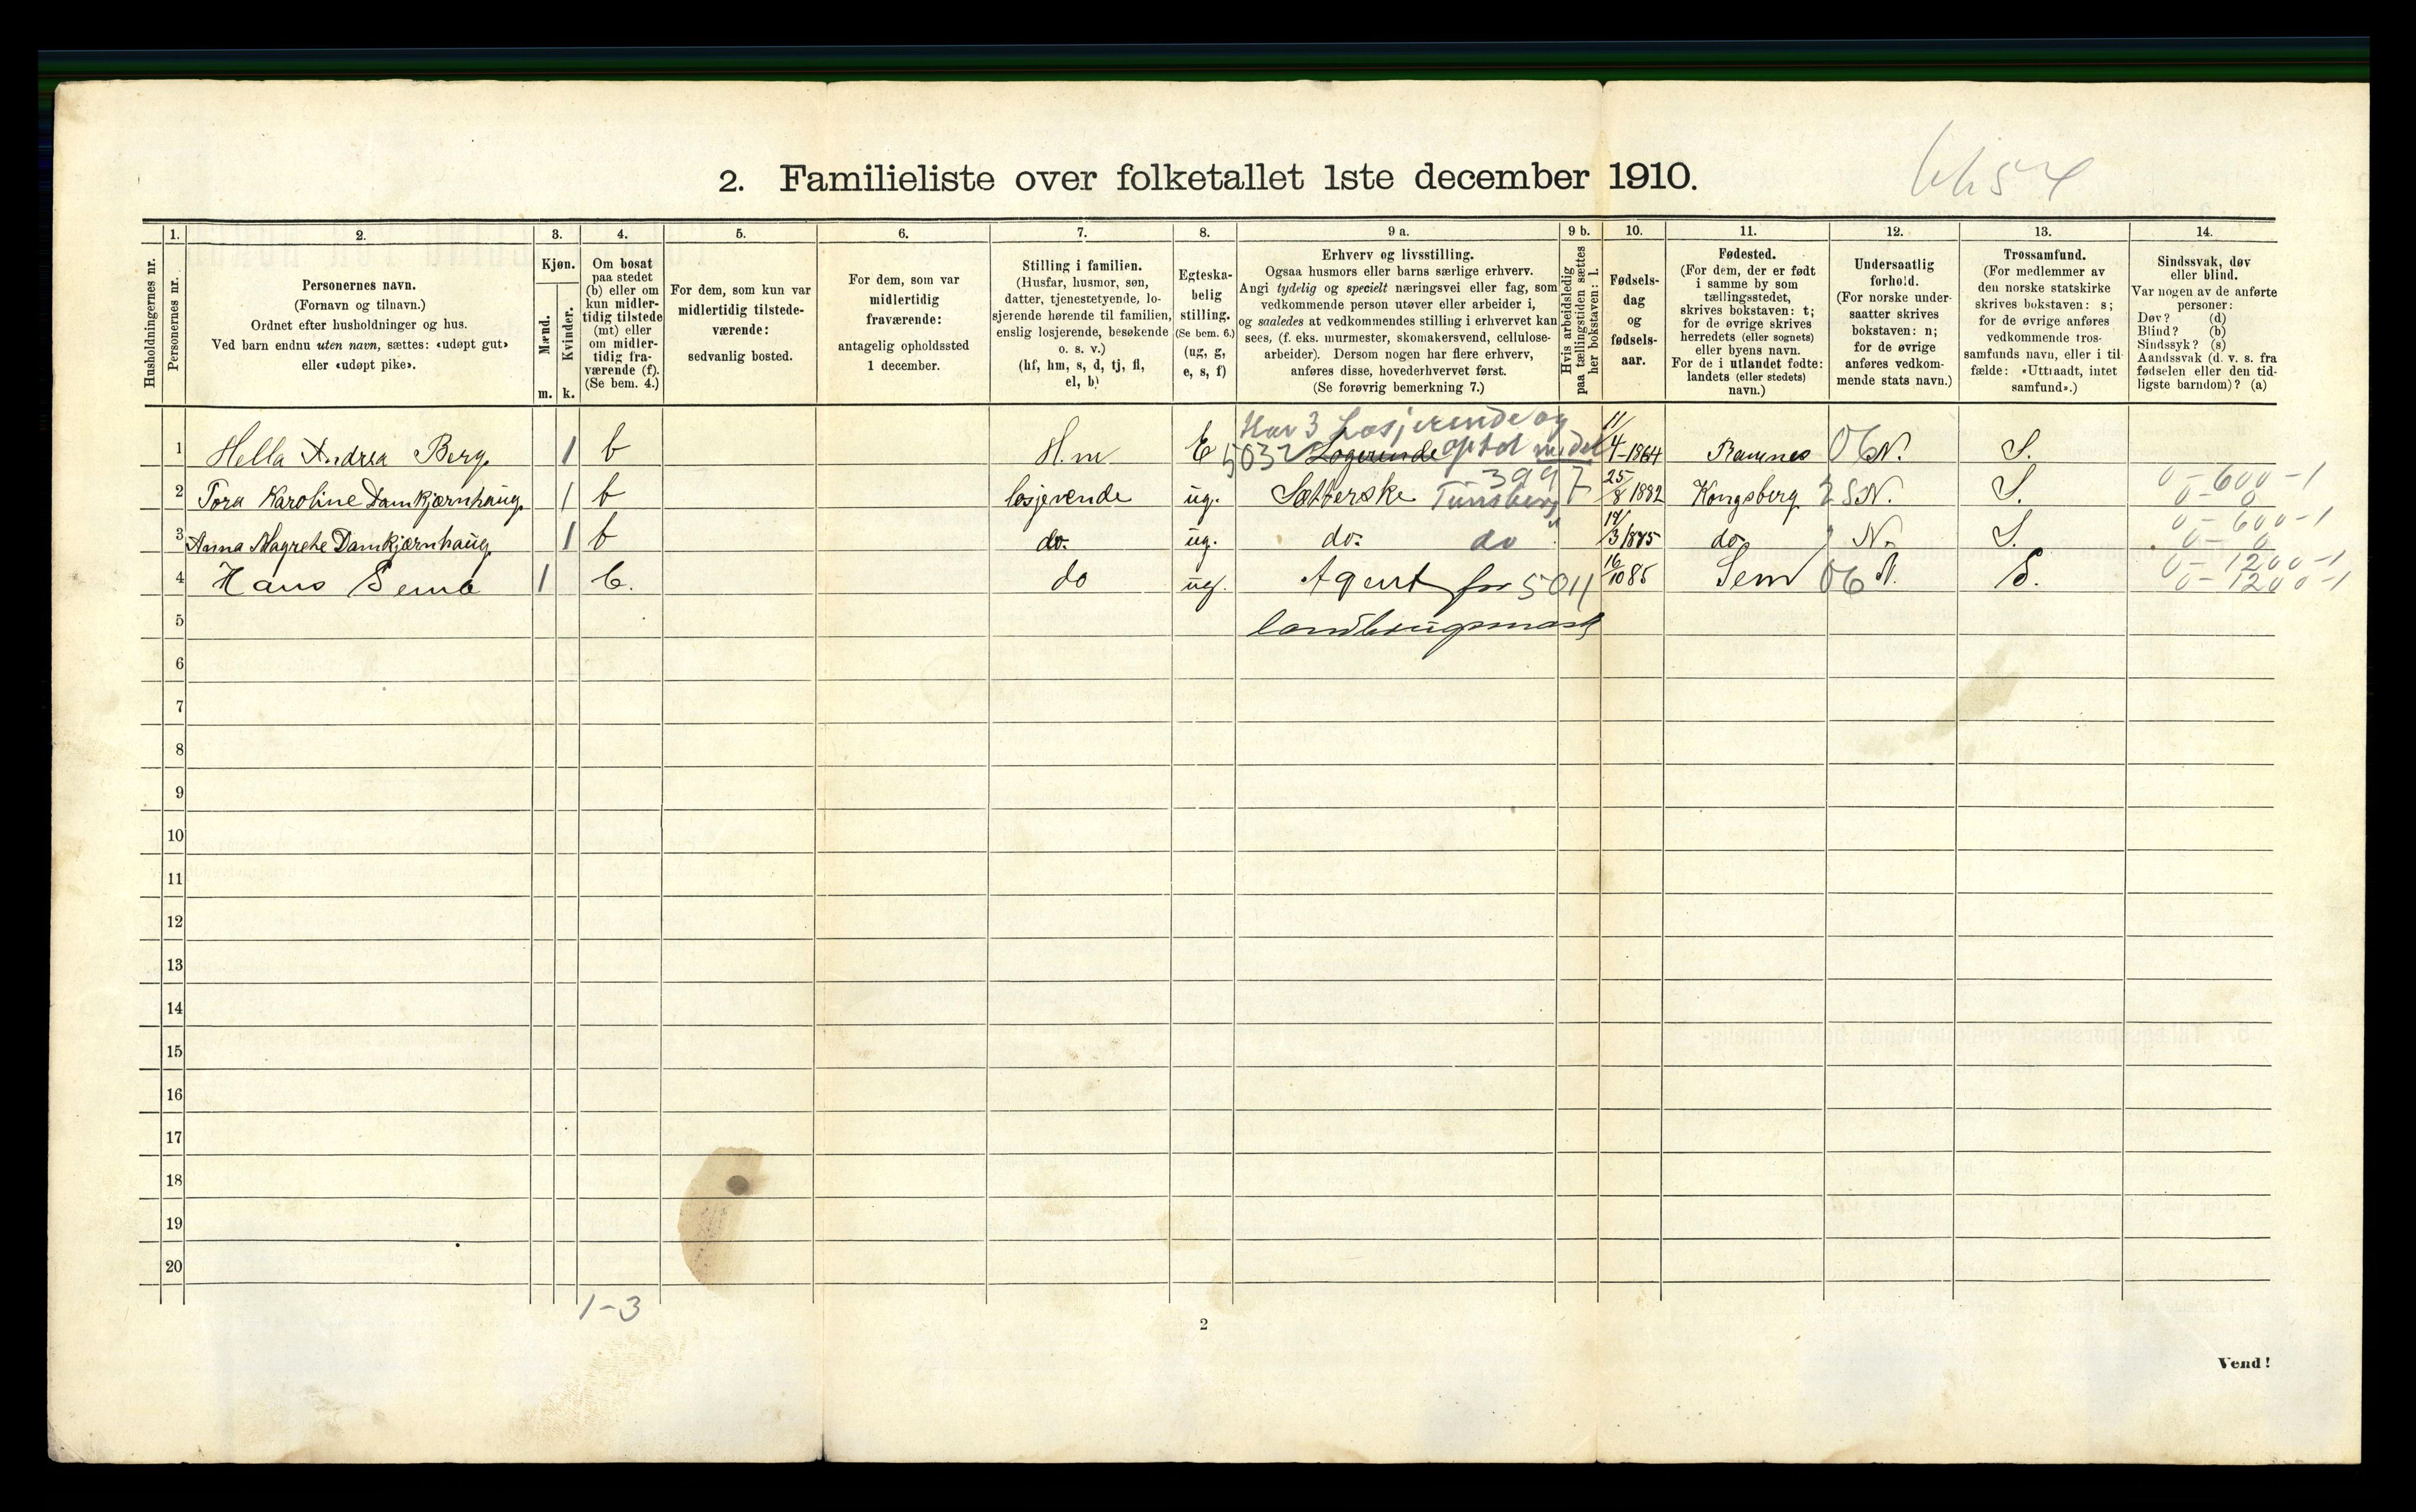 2. Familieliste over folketallet 1ste december 1910.
Husholdningernes nr.
1.
Personernes nr.
2.
Personernes navn.
(Fornavn og tilnavn.)
Ordnet efter husholdninger og hus.
Ved barn endnu uten navn, sættes: «udøpt gut»
eller «udøpt pike».
3.
Kjøn.
Mænd.
Kvinder.
m. k.
4.
Om bosat
paa stedet
(b) eller om
kun midler-
tidig tilstede
(mt) eller
om midler-
tidig fra-
værende (f).
(Se bem. 4.)
5.
For dem, som kun var
midlertidig tilstede-
værende:
sedvanlig bosted.
6.
For dem, som var
midlertidig
fraværende:
antagelig opholdssted
1 december.
7.
Stilling i familien.
(Husfar, husmor, søn,
datter, tjenestetyende, lo-
sjerende hørende til familien,
enslig losjerende, besøkende
o. s. v.)
(hf, hm, s, d, tj, fl,
el, b)
8.
Egteska-
belig
stilling.
(Se bem. 6.)
(ug, g,
e, s, f)
9 a.
Erhverv og livsstilling.
Ogsaa husmors eller barns særlige erhverv.
Angi tydelig og specielt næringsvei eller fag, som
vedkommende person utøver eller arbeider i,
og saaledes at vedkommendes stilling i erhvervet kan
sees, (f. eks. murmester, skomakersvend, cellulose-
arbeider). Dersom nogen har flere erhverv,
anføres disse, hovederhvervet først.
(Se forøvrig bemerkning 7.)
9 b.
Hvis arbeidsledig
paa tællingstiden sættes
her bokstaven: l.
10.
Fødsels-
dag
og
fødsels-
aar.
11.
Fødested.
(For dem, der er født
i samme by som
tællingsstedet,
skrives bokstaven: t;
for de øvrige skrives
herredets (eller sognets)
eller byens navn.
For de i utlandet fødte:
landets (eller stedets)
navn.)
12.
Undersaatlig
forhold.
(For norske under-
saatter skrives
bokstaven: n;
for de øvrige
anføres vedkom-
mende stats navn.)
13.
Trossamfund.
(For medlemmer av
den norske statskirke
skrives bokstaven: s;
for de øvrige anføres
vedkommende tros-
samfunds navn, eller i til-
fælde: «Uttraadt, intet
samfund».)
14.
Sindssvak, døv
eller blind.
Var nogen av de anførte
personer:
Døv? (d)
Blind? (b)
Sindssyk? (s)
Aandssvak (d. v. s. fra
fødselen eller den tid-
ligste barndom)? (a)
Har 3 Losjerende og
1 Hella Andrea Berg. 1 b H.m E 5032 Logerende 11/4-1864 Ramnes 06 N. S.
3997
2 Tora Karoline Damkjærnhaug. 1 b losjerende ug. Sætterske Tunsberg 25/8 1882 Kongsberg N. S. 0-600-1
0-0
3 Anna Magrethe Damkjærnhaug. 1 b do. ug. do. do 3/1885 do. N. S. 0-600-1
0-0
4 Hans Semb 1 b. do ug. Agent for 5011 16/10 85 Sem 06 N. S. 0-1200-1
0-1200-1
5 landbrugsmask
6
7
8
9
10
11
12
13
14
15
16
17
18
19
20
1-3
2
Vend!